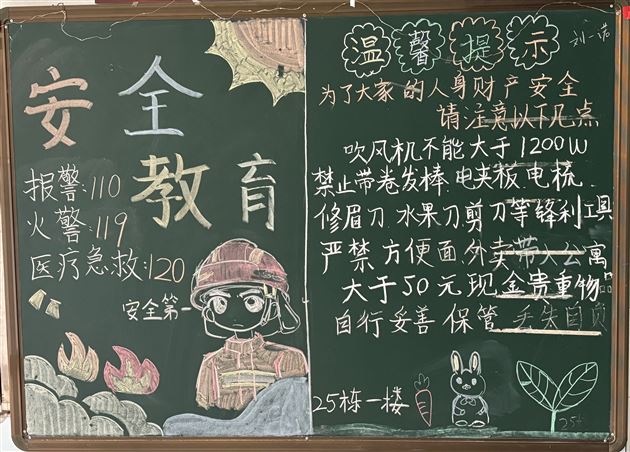 安全
教育
报警:110
火警:119
医疗急救:120
安全第一
温馨提示
刘一诺
为了大家的人身财产安全
请注意以下几点
吹风机不能大于1200W
禁止带卷发棒 电夹板 电梳
修眉刀 水果刀剪刀等锋利工具
严禁方便面外卖带入公寓
大于50元现金贵重物品
自行妥善保管 丢失自负
25栋一楼